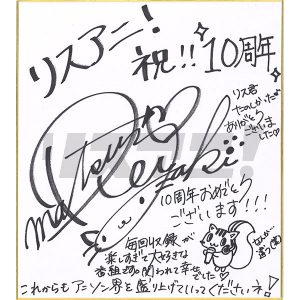 リスアニ!
祝!!10周年
リス君
たのしかったよ
ありがとう
ございま
した
Matsuzaki
10周年おめでとう
ございます!!!
毎回収録が
楽しすぎて大好きな
番組さまに関われて幸せでした
これからもアニソン界を盛り上げていってくださいネ!